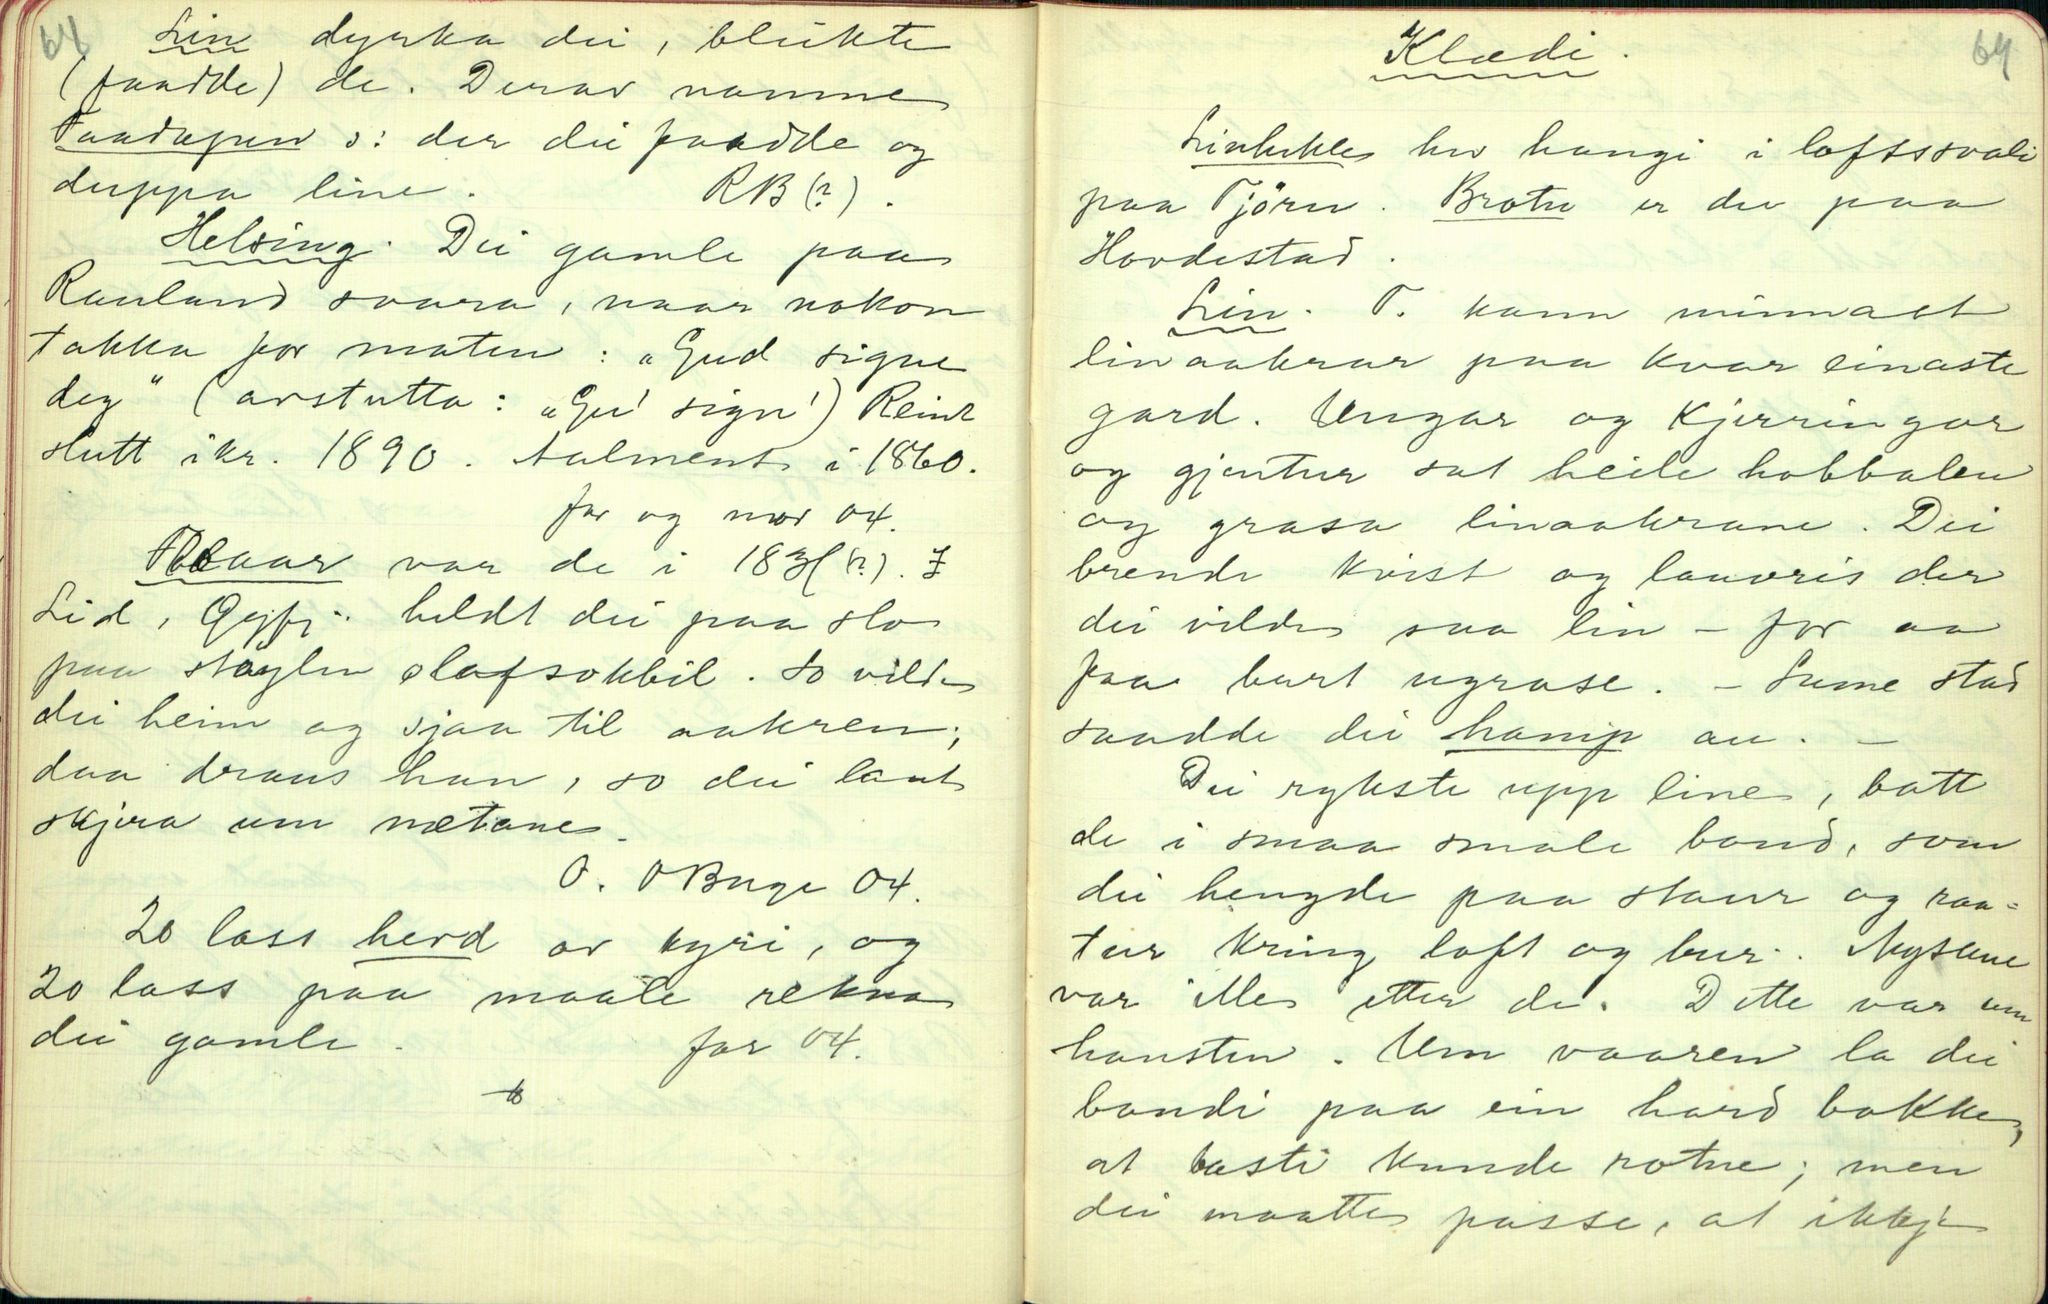 64
Lin dyrka dei, bleikte
(faadde) de. Derav namne
Faadagen ɔ: der dei faadde og
duppa line. RB (?).
Helsing. Dei gamle paa
Rauland svara, naar nokon
takka for maten: "Gud signe
deg" (avstutta: "Gu' sign') Reint
slutt ikr. 1890. Aalment i 1860.
far og mor 04.
aar var de i 183 (?). I
Lid, heldt dei paa slo
paa støylen olafsokbil. So vilde
dei heim og sjaa til aakren;
daa draus han, so dei laut
skjera um nætane.
O. O Buge 04.
20 lass herd av kyri, og
20 lass paa maale rekna
dei gamle. far 04.
64
Klædi.
Linhekle hev hangi i loftssvali
paa Tjörn. Brotu er dei paa
Hovdestad.
Lin. T. kann minnast
linaakrar paa kvar einaste
gard. Ungar og Kjerringar
og gjentur sat heile hobbalen
og grasa linaakrane. Dei
brende kvist og lauvris der
dei vilde saa lin – for aa
faa burt ugrase. – Sume stad
saadde dei hamp au. –
Dei rykste upp line, batt
de i smaa smale band, som
dei hengde paa staur og raa-
tur kring loft og bur. Mysene
var ille etter de. Dette var um
hausten. Um vaaren la dei
bandi paa ein hard bakke,
at basti kunde rotne; men
dei maatte passe, at ikkje